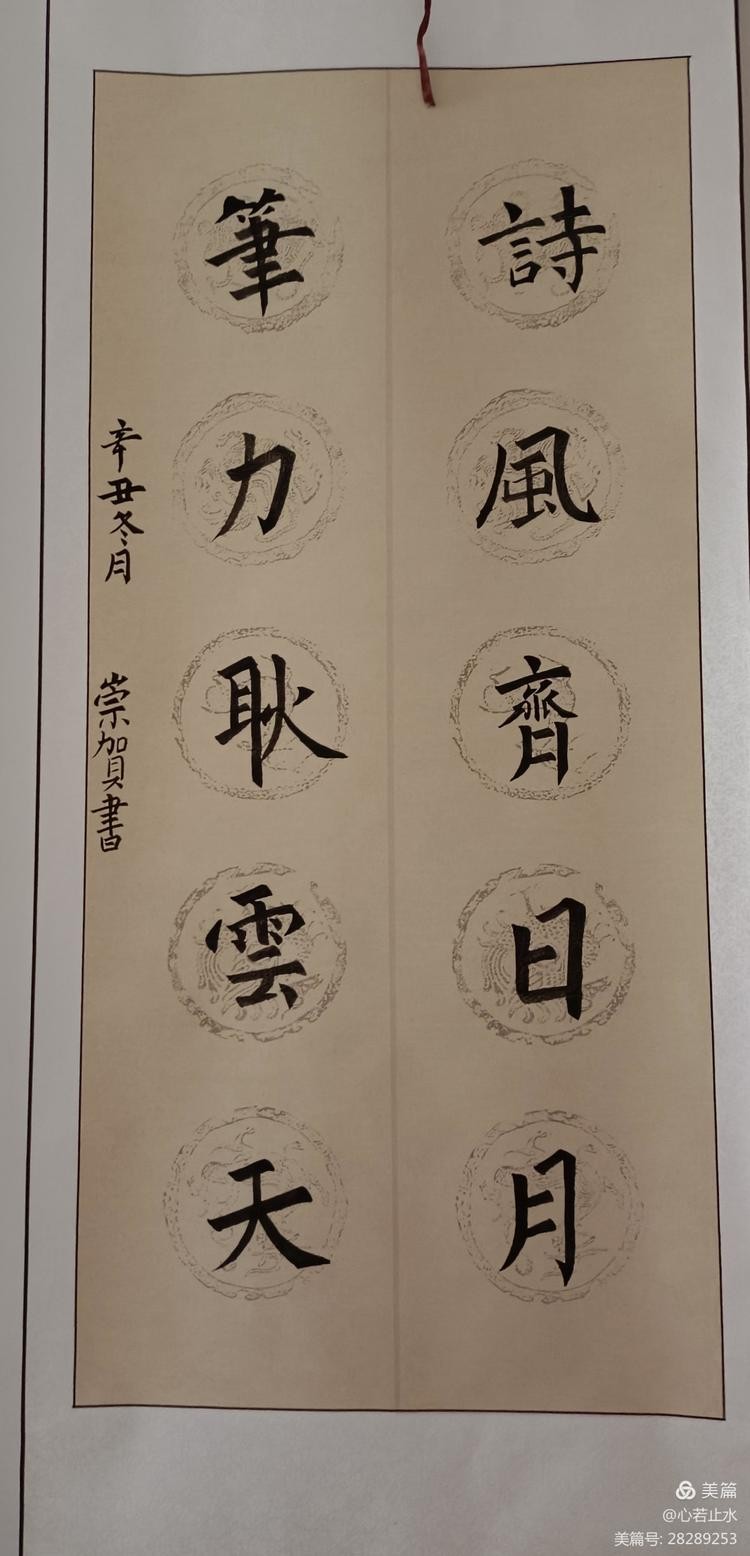 詩風齊日月
筆力耿雲天
辛丑冬月 崇賀書
美篇
@心若止水
美篇号: 28289253